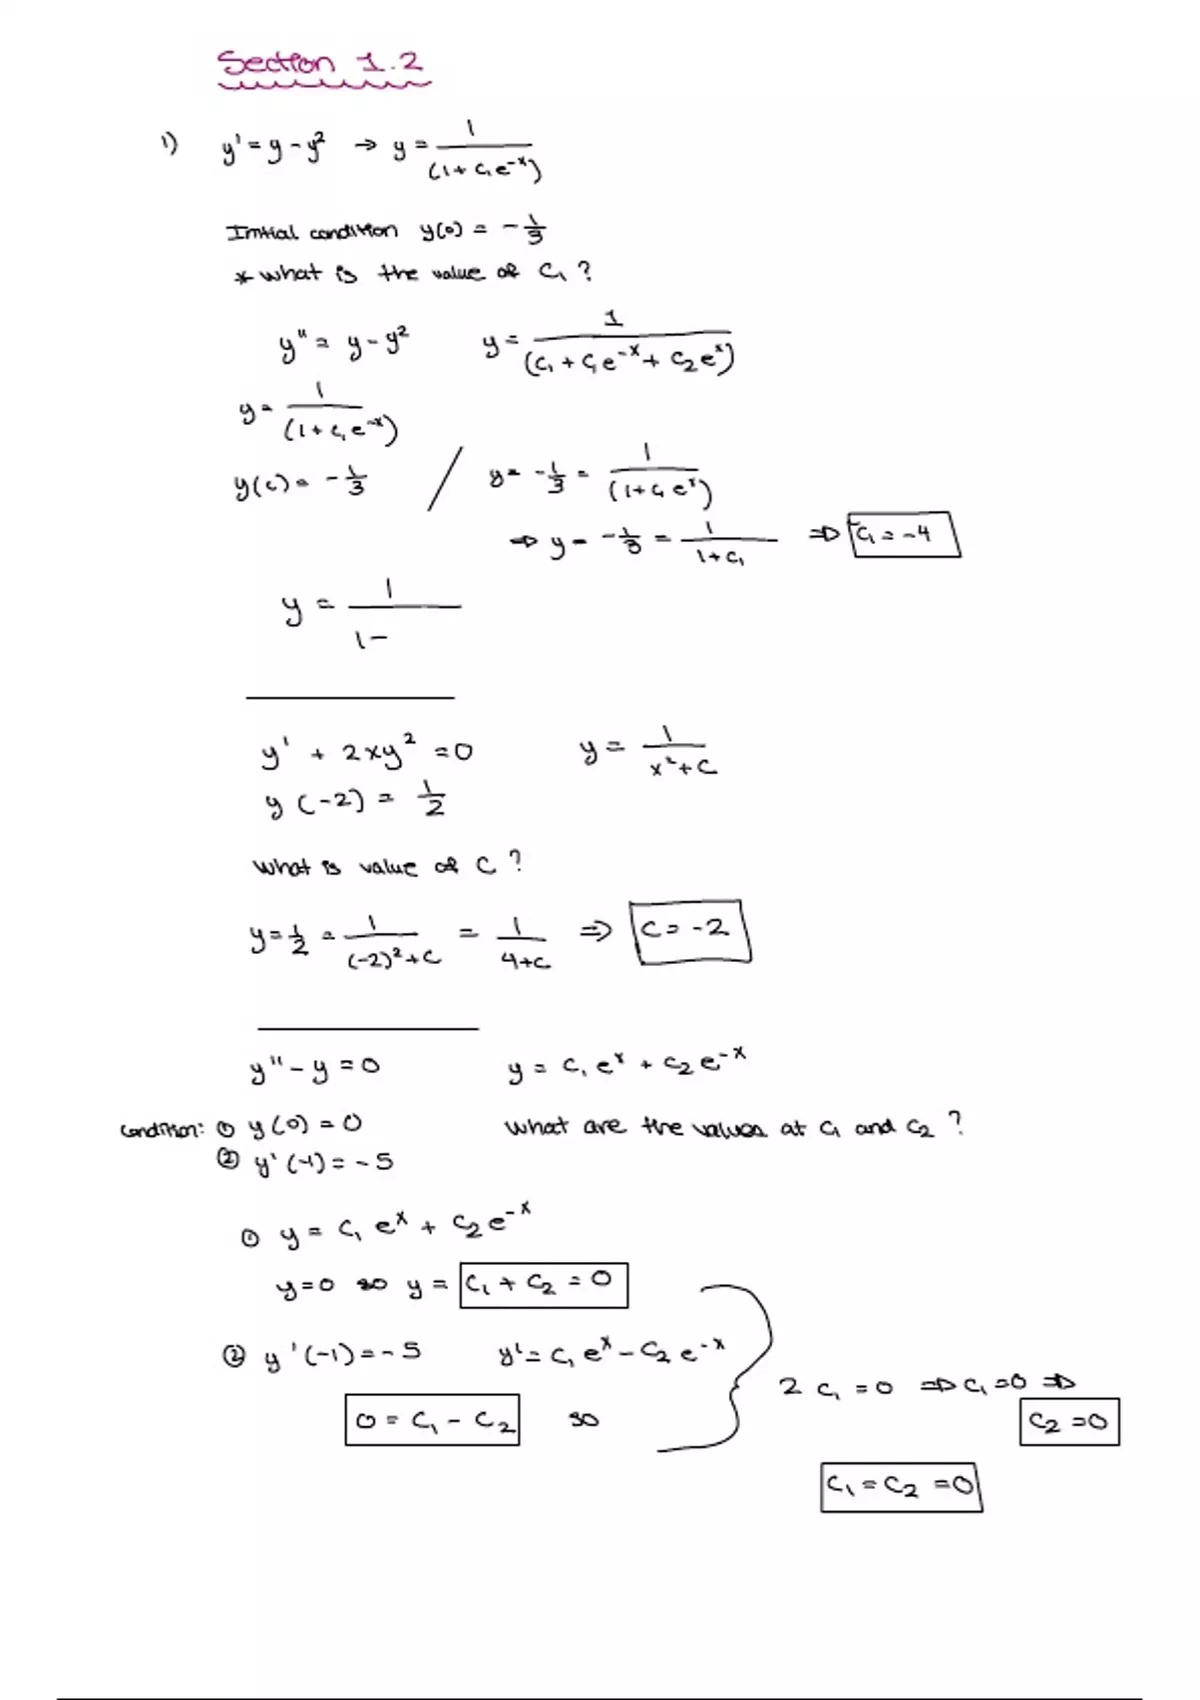 Section 1.2
1) y' = y - y² → y = 1/(1 + C₁e⁻ˣ)
Initial condition y(0) = -1/3
* what is the value of C₁?
y" = y - y² y = 1/(C₁ + C₁e⁻ˣ + C₂eˣ)
y = 1/(1 + C₁e⁻ˣ)
y(0) = -1/3 / y = -1/3 = 1/(1 + C₁eˣ)
⇒ y = -1/3 = 1/(1 + C₁) ⇒ C₁ = -4
y = 1/(1 -
y' + 2xy² = 0 y = 1/(x² + C)
y(-2) = 1/2
what is value of C?
y = 1/2 = 1/((-2)² + C) = 1/(4 + C) ⇒ C = -2
y" - y = 0 y = C₁eˣ + C₂e⁻ˣ
condition: ① y(0) = 0 what are the values at C₁ and C₂?
② y'(-1) = -5
① y = C₁eˣ + C₂e⁻ˣ
y = 0 so y = C₁ + C₂ = 0
② y'(-1) = -5 y' = C₁eˣ - C₂e⁻ˣ
2C₁ = 0 ⇒ C₁ = 0 ⇒
0 = C₁ - C₂ so C₂ = 0
C₁ = C₂ = 0